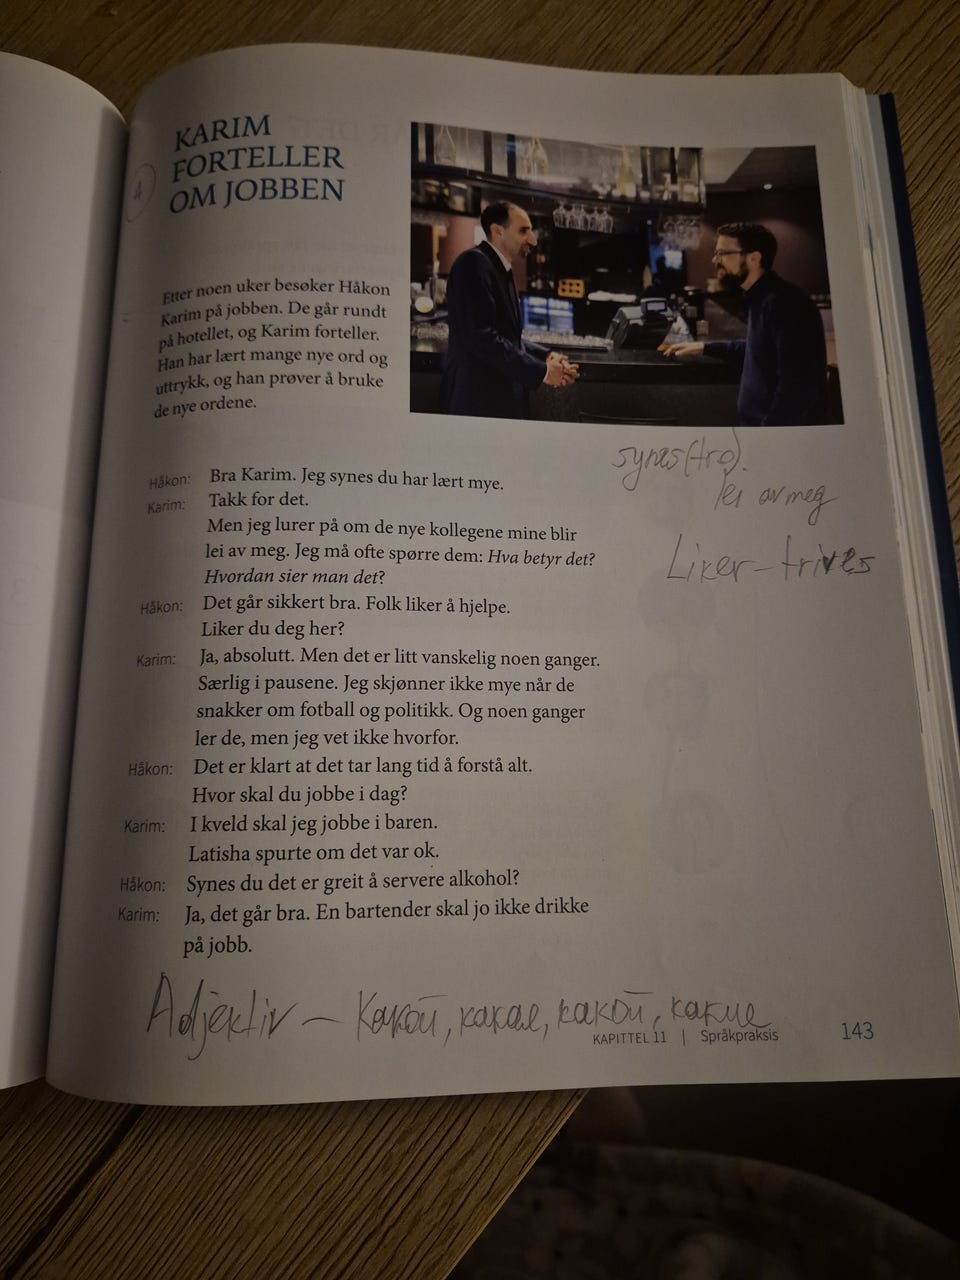 KARIM
FORTELLER
OM JOBBEN
Etter noen uker besøker Håkon
Karim på jobben. De går rundt
på hotellet, og Karim forteller.
Han har lært mange nye ord og
uttrykk, og han prøver å bruke
de nye ordene.
synes (tro).
lei av meg
Liker - trives
Håkon: Bra Karim. Jeg synes du har lært mye.
Karim: Takk for det.
Men jeg lurer på om de nye kollegene mine blir
lei av meg. Jeg må ofte spørre dem: Hva betyr det?
Hvordan sier man det?
Håkon: Det går sikkert bra. Folk liker å hjelpe.
Liker du deg her?
Karim: Ja, absolutt. Men det er litt vanskelig noen ganger.
Særlig i pausene. Jeg skjønner ikke mye når de
snakker om fotball og politikk. Og noen ganger
ler de, men jeg vet ikke hvorfor.
Håkon: Det er klart at det tar lang tid å forstå alt.
Hvor skal du jobbe i dag?
Karim: I kveld skal jeg jobbe i baren.
Latisha spurte om det var ok.
Håkon: Synes du det er greit å servere alkohol?
Karim: Ja, det går bra. En bartender skal jo ikke drikke
på jobb.
Adjektiv - Какой, какае, какой, какие
KAPITTEL 11 | Språkpraksis 143